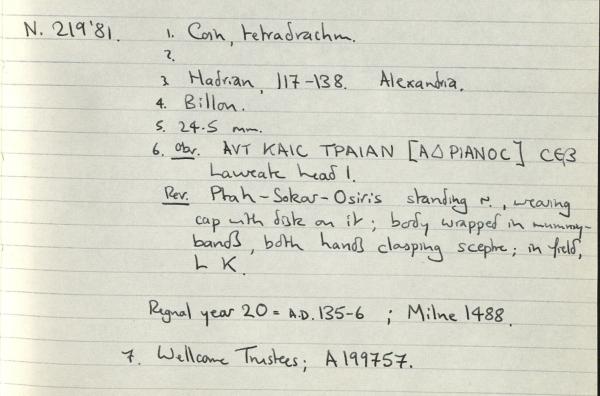 N. 219'81. 1. Coin, tetradrachm.
2.
3. Hadrian, 117-138. Alexandria.
4. Billon.
5. 24.5 mm.
6. Obv. ΑVΤ ΚΑΙC ΤΡΑΙΑΝ [ΑΔΡΙΑΝΟC] CЄΒ
Laureate head l.
Rev. Ptah-Sokar-Osiris standing r., wearing
cap with disk on it; body wrapped in mummy-
bands, both hands clasping sceptre; in field,
L K.
Regnal year 20 = A.D. 135-6 ; Milne 1488.
7. Wellcome Trustees; A199757.